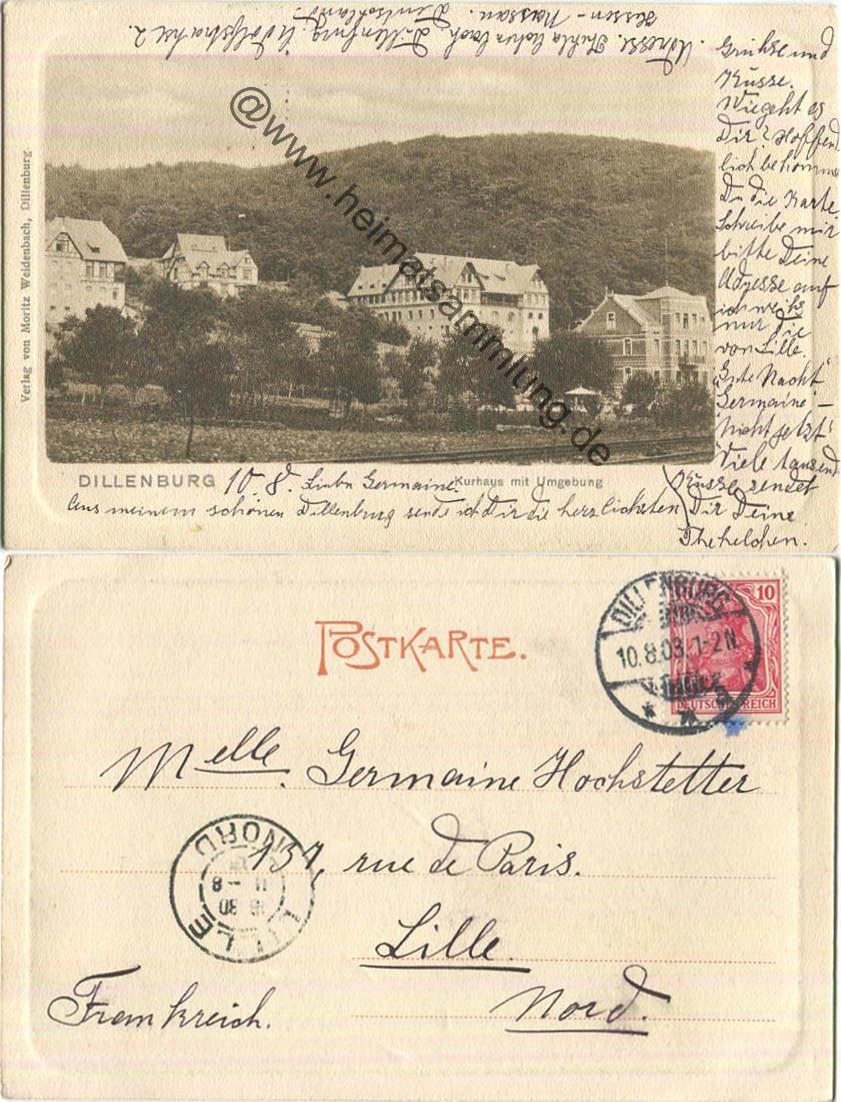 Adresse. Thekla Hohenbach, Dillenburg. Adolfstrasse 2.
Hessen-Nassau. Deutschland.
@www.heimatsammlung.de
Verlag von Moritz Weidenbach, Dillenburg.
DILLENBURG
Kurhaus mit Umgebung
10 8. Liebe Germaine.
Aus meinem schönen Dillenburg sende ich Dir die herzlichsten
Grühse und
Küsse.
Wie geht es
Dir? Hoffend
lich bekomme
Du die Karte,
Schreibe mir
bitte Deine
Adresse auf
ich weihs
nur die
von Lille.
"Gute Nacht"
"Germaine" -
"Nicht jetzt"
Viele tausend
Küsse sendet
Dir Deine
Thekelchen.
POSTKARTE.
DILLENBURG
10.8.03. 1-2 N.
a
10
DEUTSCHES REICH
Melle. Germaine Hochstetter
137, rue de Paris.
Lille.
Nord.
Frankreich.
LILLE
NORD
16 30
11 - 8